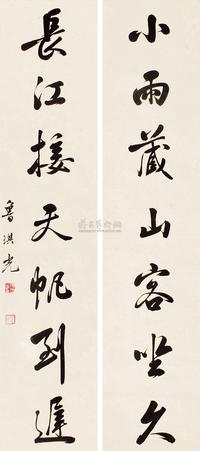 小雨藏山客坐久
長江接天帆到遲
魯琪光